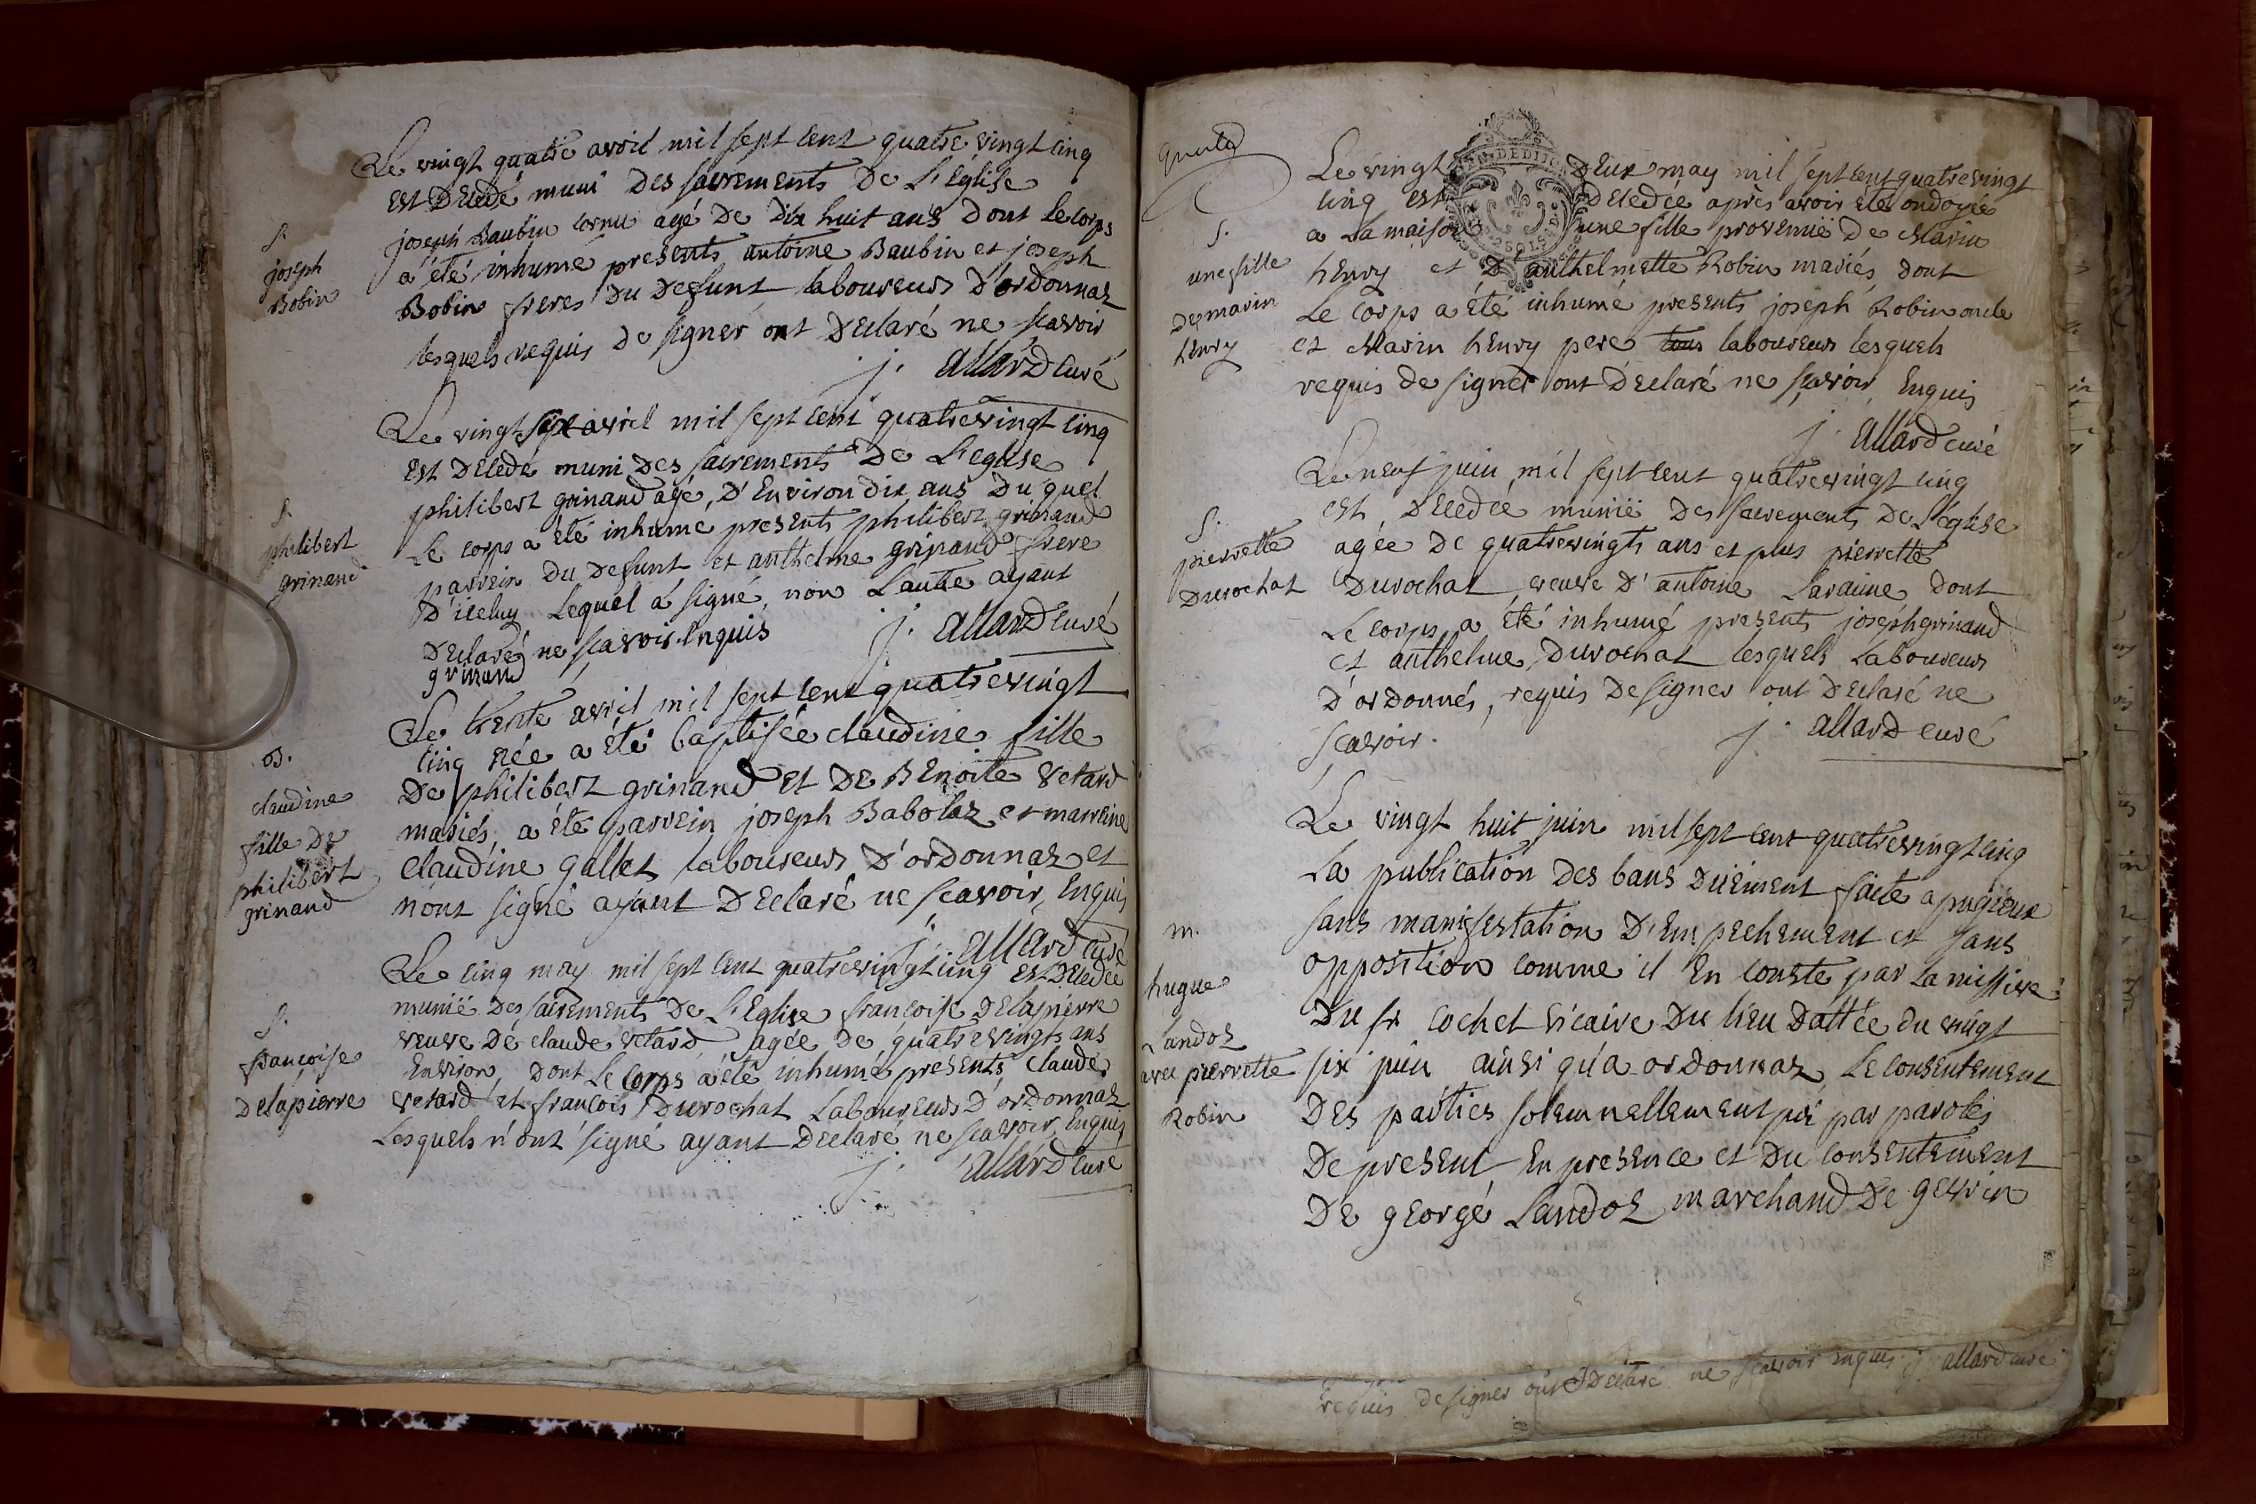 Le vingt quatre avril mil sept cent quatre vingt cinq
est decedé muni des sacrements de L'Eglise
S.
joseph
Bobin
joseph Baubin cornu agé de dix huit ans dont le corps
a été inhumé presents antoine Baubin et joseph
Bobin freres du defunt laboureurs d'ordonnaz
lesquels requis de signer ont declaré ne scavoir
j. allard curé
Le vingt six avril mil sept cent quatrevingt cinq
est decedé muni des sacrements de L'eglise
S.
philibert
grinand
philibert grinand agé d'environ dix ans du quel
Le corps a été inhumé presents philibert grinand
parrein du defunt et anthelme grinand frere
d'iceluy Lequel a signé, non L'autre ayant
declaré ne scavoir Enquis
grinand
j. allard curé
Le trente avril mil sept cent quatrevingt
cinq née a été baptisée claudine fille
B.
claudine
fille de
philibert
grinand
de philibert grinand et de Benoite vetard
mariés, a été parrein joseph Babolaz et marreine
claudine gallet laboureurs d'ordonnaz et
n'ont signé ayant declaré ne scavoir, Enquis
j. allard curé
Le cinq may mil sept cent quatrevingt cinq est decedée
S.
francoise
Delapierre
munië des sacrements de L'Eglise francoise Delapierre
veuve de claude vetard agée de quatrevingts ans
Environ, dont Le corps a été inhumé presents claude
vetard et francois Durochat Laboureurs d'ordonnaz
Lesquels n'ont signé ayant declaré ne scavoir, Enquis
j. allard curé
Le vingt deux may mil sept cent quatrevingt
cinq est decedée après avoir été ondoyée
S.
une fille
de marin
henry
a La maison une fille provenuë de Marin
henry et d'anthelmette Robin mariés, dont
Le corps a été inhumé presents joseph Robin oncle
et Marin henry pere tous laboureurs lesquels
requis de signer ont declaré ne scavoir, Enquis
j. allard curé
Le neuf juin mil sept cent quatrevingt cinq
est decedée munië des sacrements de L'église
S.
pierrette
Durochat
agée de quatrevingts ans et plus pierrette
Durochat veuve d'antoine Savarine dont
Le corps a été inhumé presents joseph grinand
et anthelme Durochat lesquels Laboureurs
d'ordonnés, requis de signer ont declaré ne
scavoir.
j. allard curé
Le vingt huit juin mil sept cent quatrevingt cinq
La publication des bans düement faite a pugieux
m.
hugue
Landoz
avec pierrette
Robin
sans manifestation d'empechement et sans
opposition comme il En conste par La missive
du sr cochet vicaire du lieu dattée du vingt
six juin ainsi qu'a ordonnaz, Le consentement
des parties solemnellement pri par paroles
de present, En presence et du consentement
de george Landoz marchand de gevrin
requis de signer ont declaré ne scavoir enquis j. allard curé